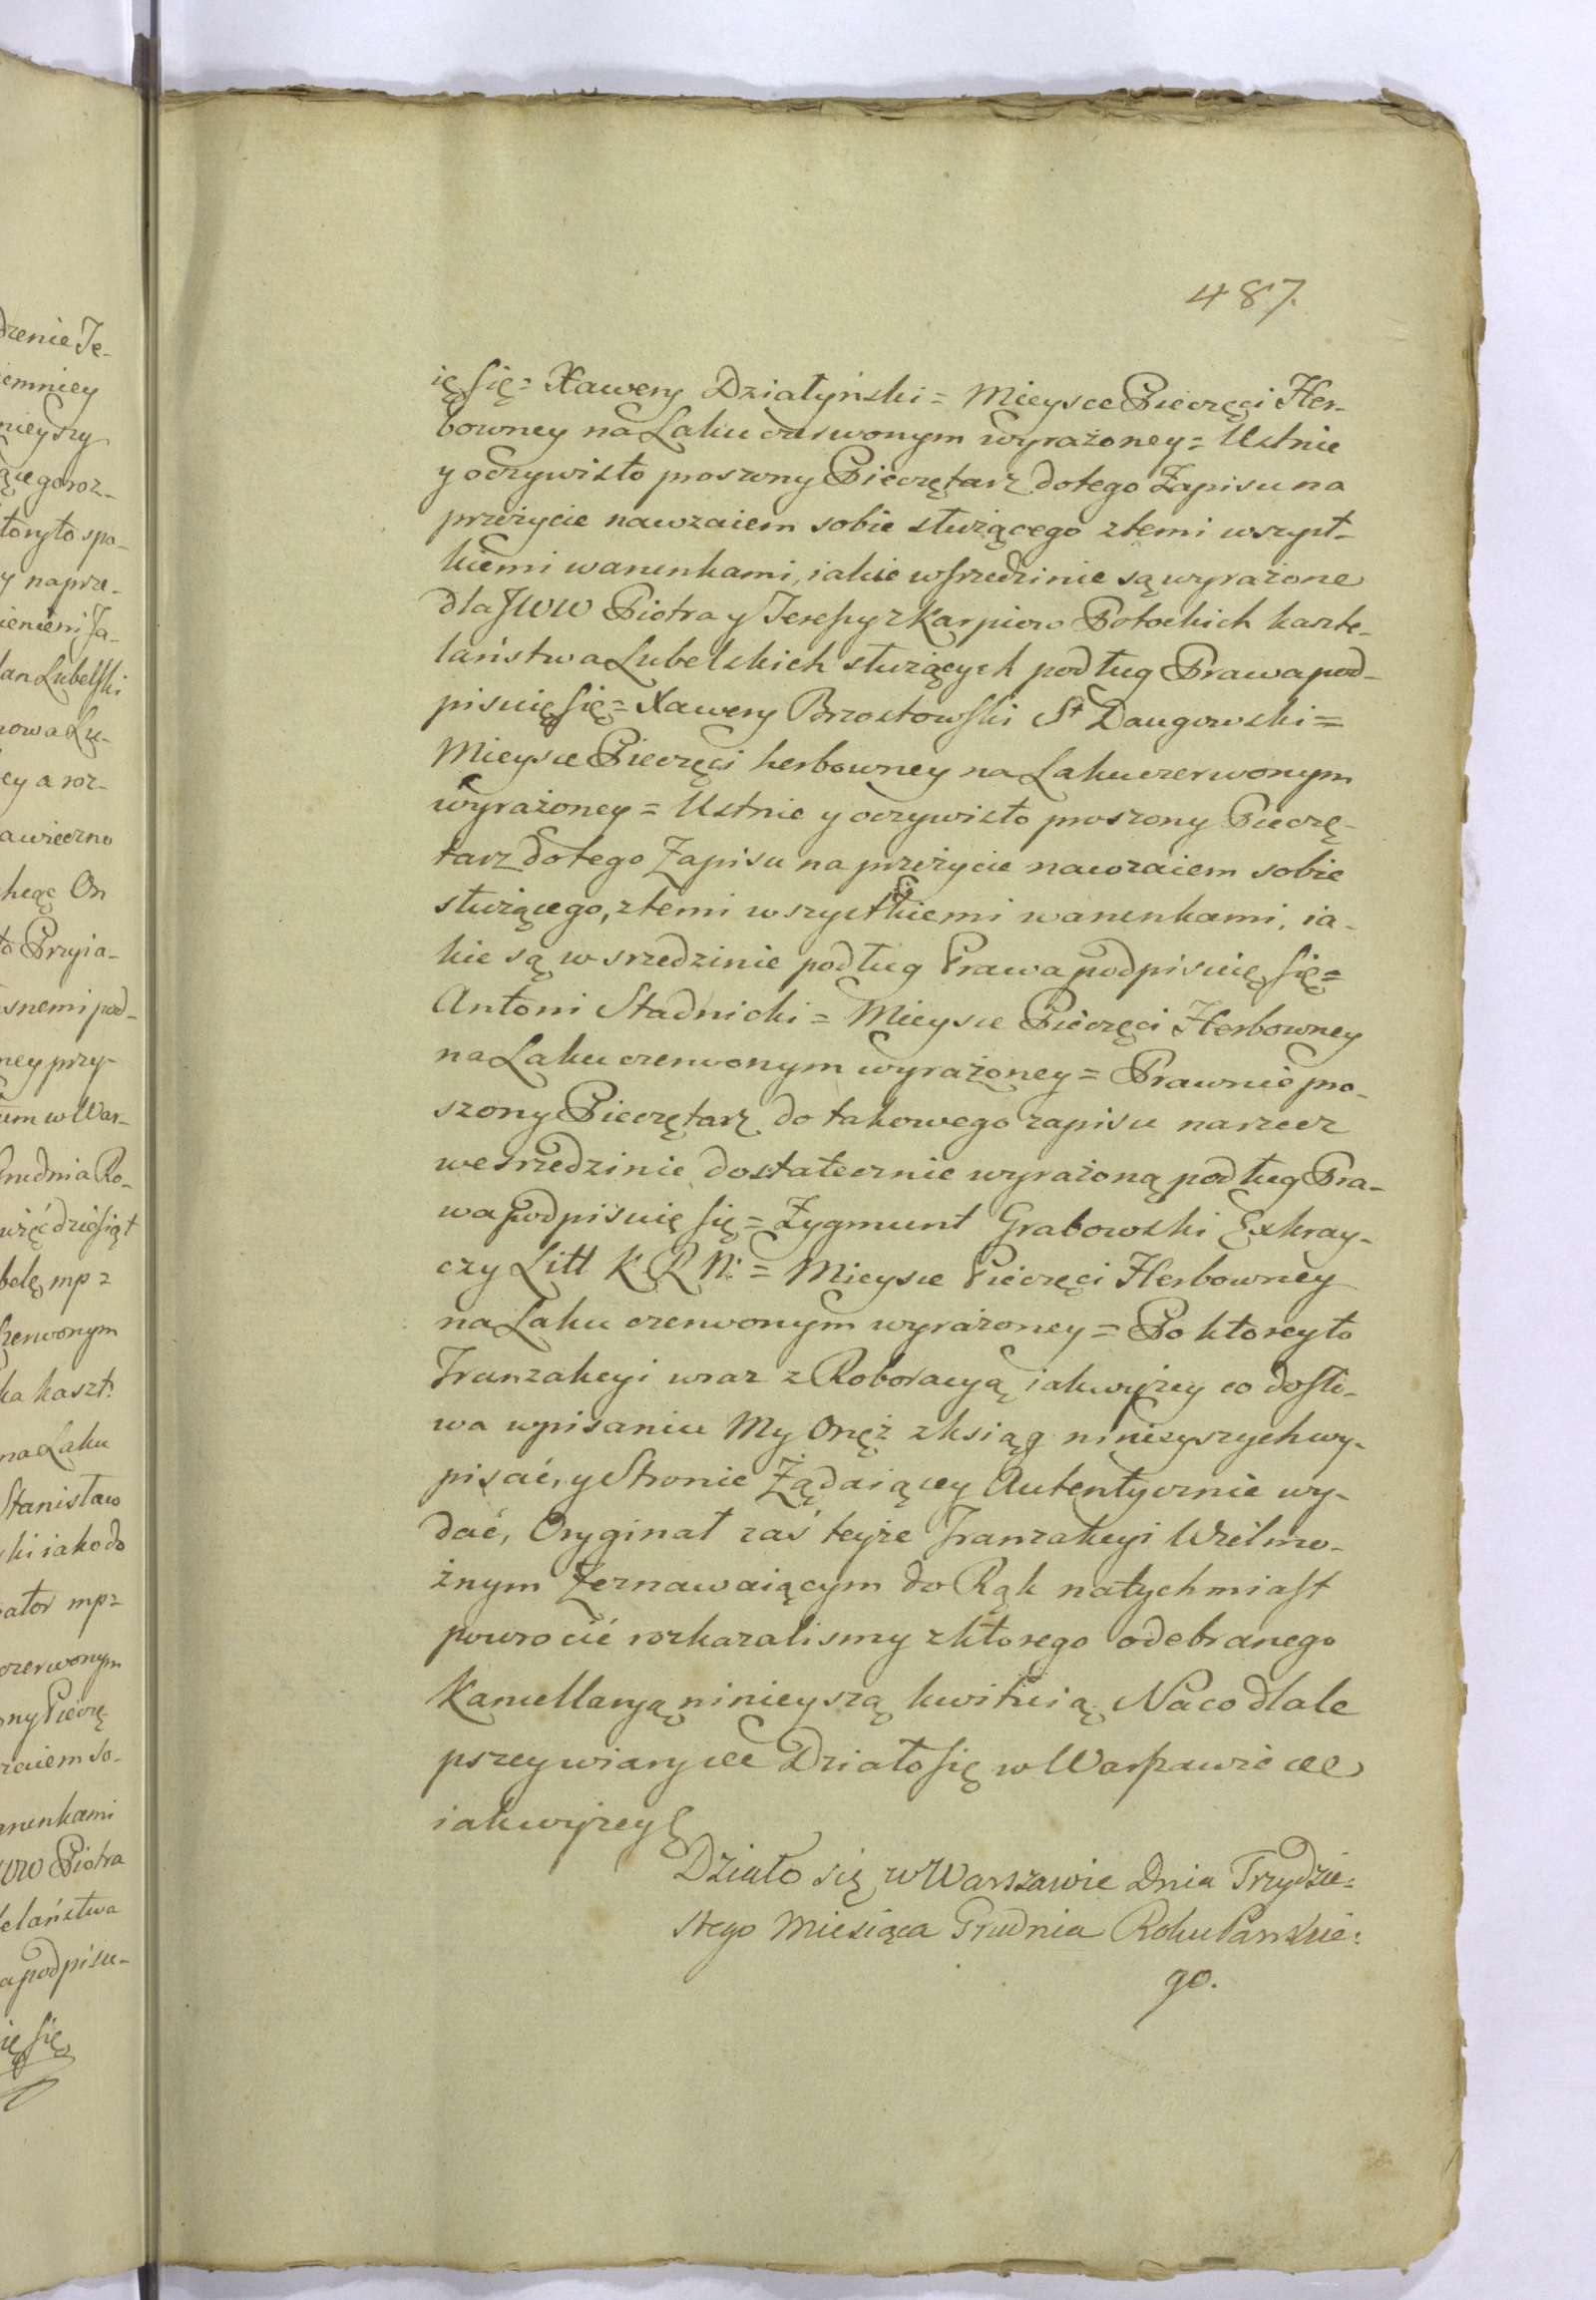 487.
ię się = Xawery Działyński = Mieysce Pieczęci Her-
bowney na Laku czerwonym wyrażoney = Ustnie
y oczywisto proszony Pieczętarz do tego Zapisu na
przeżycie nawzaiem sobie służącego z temi wszyst-
kiemi warunkami, iakie wsrzedzinie są wyrażone
dla JWW Piotra y Teresy z Karpiow Potockich kaszte-
laństwa Lubelskich służących podług Prawa pod-
pisuię się = Xawery Brzostowski St Daugowski =
Mieysce Pieczęci herbowney na Laku czerwonym
wyrażoney = Ustnie y oczywisto proszony Pieczę-
tarz do tego Zapisu na przeżycie nawzaiem sobie
służącego, z temi wszystkiemi warunkami, ia-
kie są w srzedzinie podług Prawa podpisuię się =
Antoni Stadnicki = Mieysce Pieczęci Herbowney
na Laku czerwonym wyrażoney = Prawnie pro-
szony Pieczętarz do takowego zapisu na rzecz
we srzedzinie dostatecznie wyrażoną podług Pra-
wa podpisuię się = Zygmunt Grabowski Exkray-
czy Litt K. R N: = Mieysce Pieczęci Herbowney
na Laku czerwonym wyrażoney = Po ktorey to
Tranzakcyi wraz z Roboracyą iak wyżey co do sło-
wa wpisaniu My Onęż z ksiąg ninieyszych wy-
pisać, y Stronie Żądaiącey Autentycznie wy-
dać, Oryginał zaś teyże Tranzakcyi Wielmo-
żnym Zeznawaiącym do Rąk natychmiast
powrocić rozkazalismy z ktorego odebranego
Kancellaryą ninieyszą kwituią. Na co dla le
pszey wiary &c Działo się w Warszawie &c
iak wyżey
Działo się w Warszawie Dnia Trzydzie:
stego Miesiąca Grudnia Roku Pańskie:
go.
drzenie Je-
iemniey
nieyszy
ące go roz-
tory to spo-
y naprze-
lan Lubelski
nowa Lu-
ey a roz-
a wieczno
On
to Przyia-
snemi pod-
ney przy-
um w War-
Grudnia Ro-
więćdziesiąt
belę mp =
czerwonym
ka kaszt:
na Laku
Stanisław
ki iako do
ator mp =
czerwonym
ny Pieczę
zaiem so-
arunkami
WW Piotra
telaństwa
a podpisu-
ię się